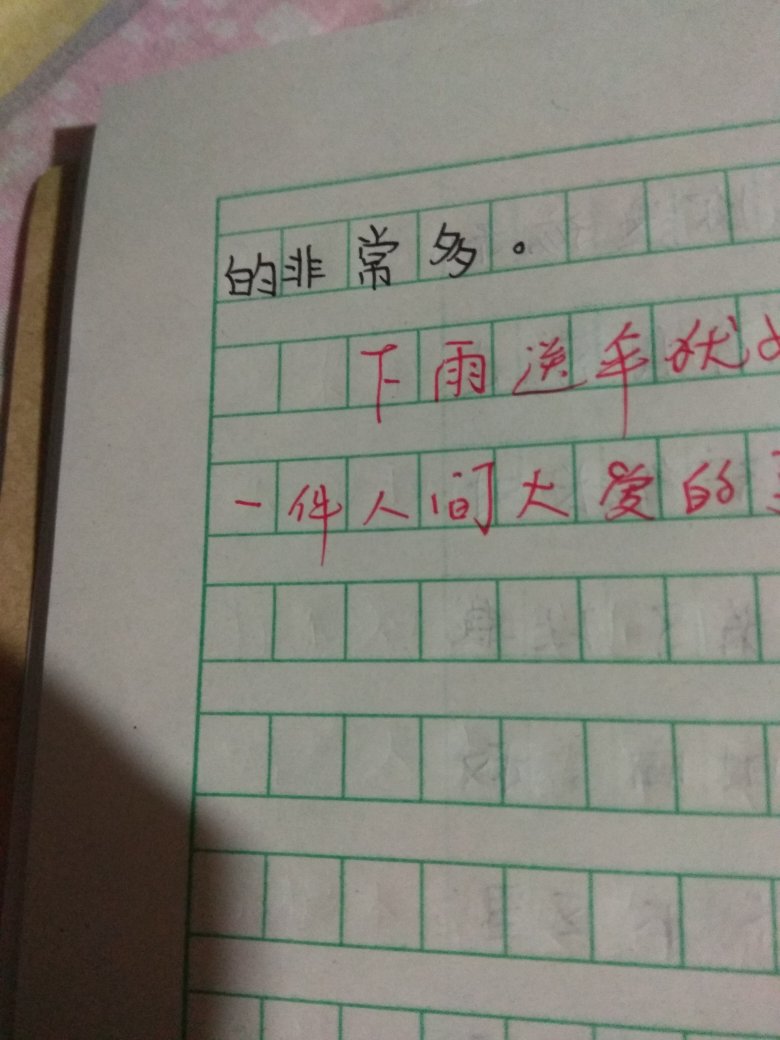 的非常多。
下雨送伞
一件人间大爱的